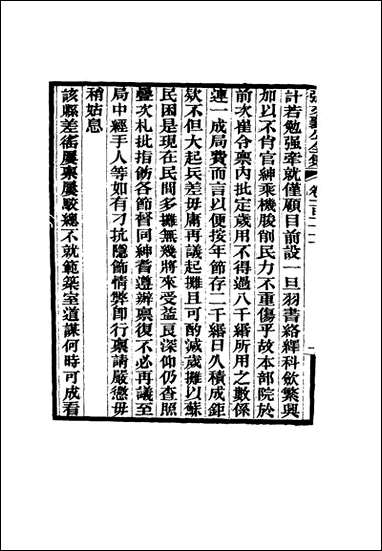 張文襄公全集 卷一百二十二
計若勉强牽就僅顧目前設一旦羽書絡繹科斂繁興
加以不肖官紳乘機朘削民力不重傷乎故本部院於
前次崔令稟內批定歲用不得過八千緡所用之數係
連一成局費而言以便按年節存二千緡日久積成鉅
欵不但大起兵差毋庸再議起攤且可酌減歲攤以蘇
民困是現在民間多攤無幾將來受益良深仰仍查照
疊次札批指飭各節督同紳耆遵辦稟復不必再議至
局中經手人等如有刁抗隱飾情弊卽行稟請嚴懲毋
稍姑息
該縣差徭屢稟屢駁總不就範築室道謀何時可成看